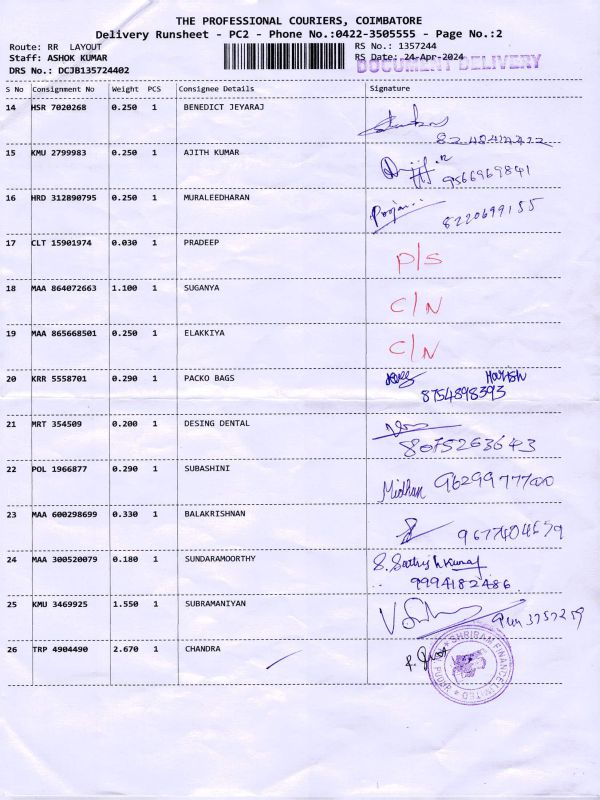 THE PROFESSIONAL COURIERS, COIMBATORE
Delivery Runsheet - PC2 - Phone No.:0422-3505555 - Page No.:2
Route: RR LAYOUT RS No.: 1357244
Staff: ASHOK KUMAR RS Date: 24-Apr-2024
DOCUMENT DELIVERY
DRS No.: DCJB135724402
S No Consignment No Weight PCS Consignee Details Signature
14 HSR 7020268 0.250 1 BENEDICT JEYARAJ
15 KMU 2799983 0.250 1 AJITH KUMAR
9566969841
16 HRD 312890795 0.250 1 MURALEEDHARAN
8220699155
17 CLT 15901974 0.030 1 PRADEEP
P/S
18 MAA 864072663 1.100 1 SUGANYA
C/N
19 MAA 865668501 0.250 1 ELAKKIYA
C/N
20 KRR 5558701 0.290 1 PACKO BAGS
Harish
8754898393
21 MRT 354509 0.200 1 DESING DENTAL
8075263643
22 POL 1966877 0.290 1 SUBASHINI
Midhan
23 MAA 600298699 0.330 1 BALAKRISHNAN
24 MAA 300520079 0.180 1 SUNDARAMOORTHY
S. Sathish kumar
9994182486
25 KMU 3469925 1.550 1 SUBRAMANIYAN
26 TRP 4904490 2.670 1 CHANDRA
SHRIRAM FINANCE LIMITED